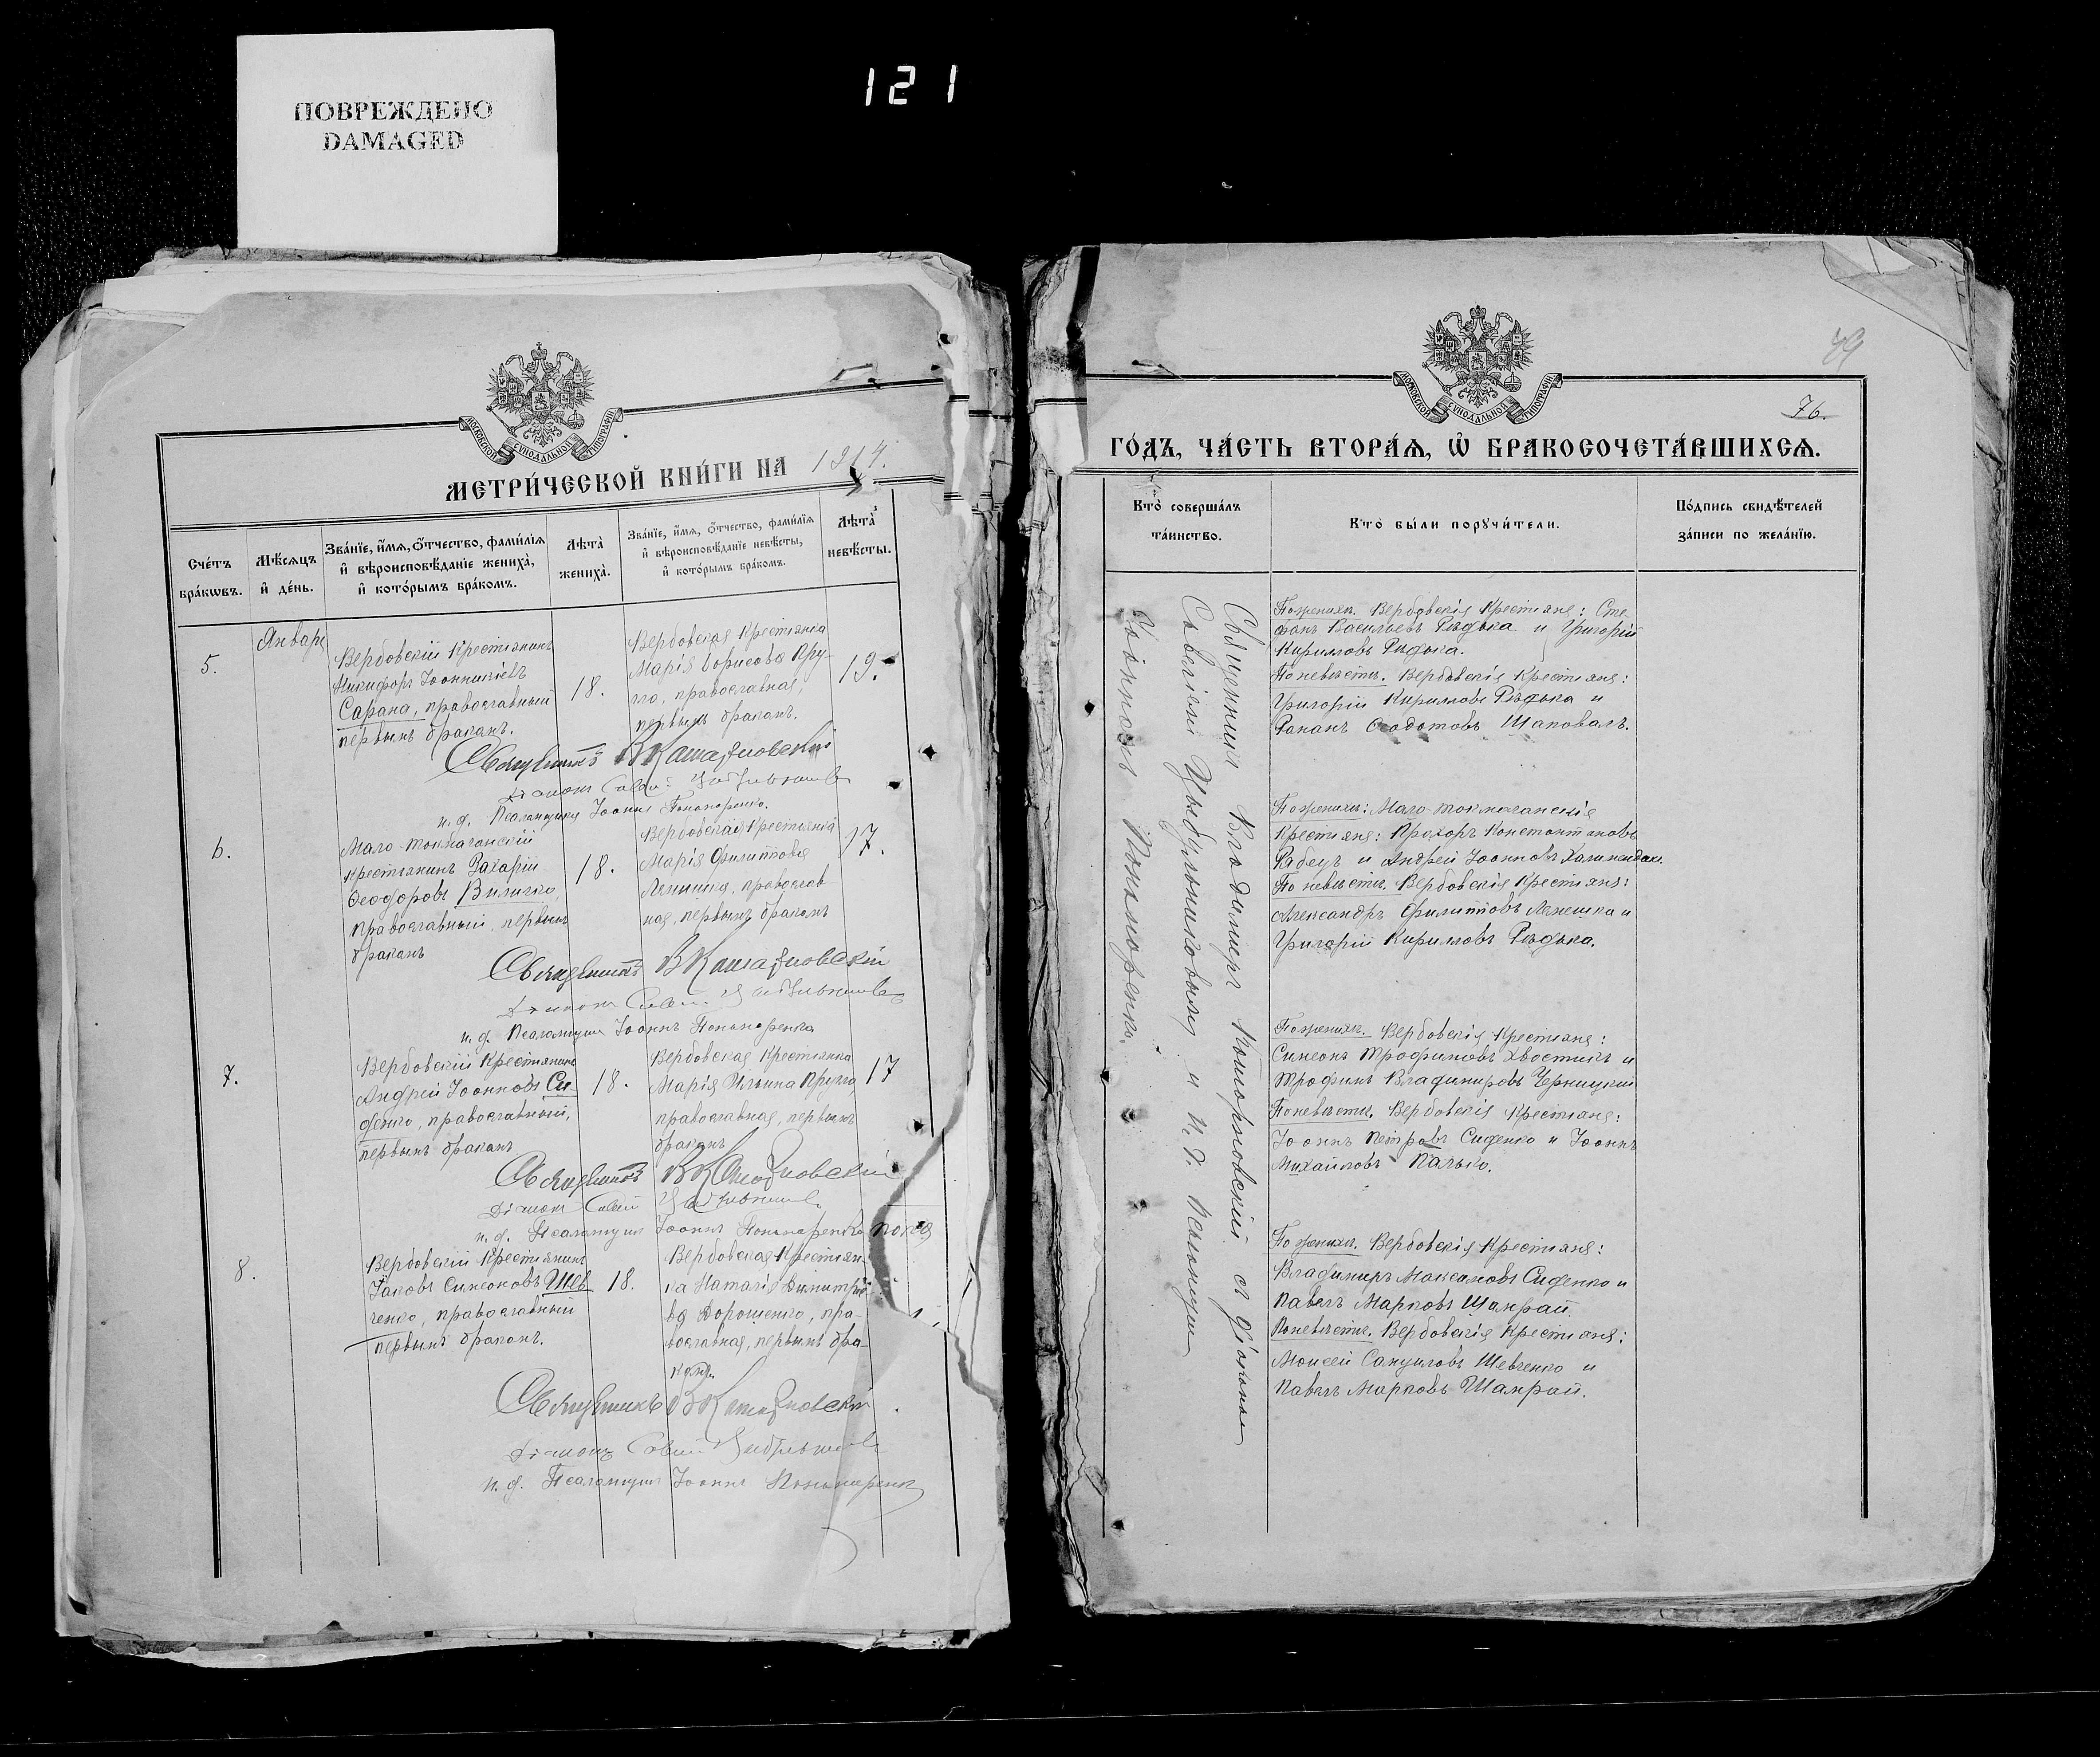 ПОВРЕЖДЕНО
DAMAGED
121
МОСКОВСКОЙ СѴНОДАЛЬНОЙ ТИПОГРАФІИ
МЕТРИ́ЧЕСКОЙ КНИ́ГИ НА 1914.
Сче́тъ бра́кѡвъ.
Мѣ́сяцъ и҆ де́нь.
Зва́нїе, и҆́мѧ, ѻ҆́тчество, фами́лїѧ и҆ вѣроисповѣ́данїе жениха̀, и҆ кото́рымъ бра́комъ.
Лѣ́та̀ жениха̀.
Зва́нїе, и҆́мѧ, ѻ҆́тчество, фами́лїѧ и҆ вѣроисповѣ́данїе невѣ́сты, и҆ кото́рымъ бра́комъ.
Лѣ́та̀ невѣ́сты.
Январь
5.
Вербовскій Крестьянинъ
Никифоръ Іоанникіевъ
Сарана, православный
первымъ бракомъ.
18.
Вербовская Крестьянка
Марія Борисова Пру-
православная,
первымъ бракомъ.
19.
Священникъ В
Діаконъ
и. д. Псаломщика Іоаннъ Пономаренко.
6.
Мало-Токмачанскій
крестьянинъ Захарій
Ѳеодоровъ Величко
православный, первымъ
бракомъ
18.
Вербовская Крестьянка
Марія Филиппова
православ
ная, первымъ бракомъ
17.
Священникъ В
Діаконъ
и. д. Псаломщика Іоаннъ Пономаренко
7.
Вербовскій Крестьянинъ
Андрей Іоанновъ Си-
денко, православный,
первымъ бракомъ
18.
Вербовская Крестьянка
Марія Ильина
православная, первымъ
бракомъ
17
Священникъ В
Діаконъ
и. д. Псаломщика Іоаннъ Пономаренко
8.
Вербовскій Крестьянинъ
Іаковъ Симеоновъ Шев
ченко, православный
первымъ бракомъ.
18.
Вербовская Крестьян-
ка Наталія Димитріе-
ва Дорошенко, пра-
вославная, первымъ бра-
комъ.
Священникъ В
Діаконъ
и. д. Псаломщика Іоаннъ Пономаренко
МОСКОВСКОЙ СѴНОДАЛЬНОЙ ТИПОГРАФІИ
79
76.
ГО́ДЪ, ЧА́СТЬ ВТОРА́Ѧ, Ѡ҆ БРАКОСОЧЕТА́ВШИХСѦ.
Кто̀ соверша́лъ та́инство.
Кто̀ бы́ли порꙋчи́тели.
По́дпись свидѣ́телей за́писи по жела́нїю.
Священникъ Владимиръ съ діакономъ
Саввіемъ Цыбульниковымъ и и. д. псаломщика
Іоанномъ Пономаренко.
По женихѣ. Вербовскія Крестьяне: Сте
фанъ Васильевъ Рѣдька и Григорій
Кирилловъ Рѣдька.
По невѣстѣ. Вербовскія Крестьяне:
Григорій Кирилловъ Рѣдька и
Романъ Ѳеодотовъ Шаповалъ.
По женихѣ: Мало-токмачанскіе
Крестьяне: Прохоръ Константиновъ
Рябецъ и Андрей Іоанновъ
По невѣстѣ. Вербовскія Крестьяне:
Александръ Филипповъ Лемешка и
Григорій Кирилловъ Рѣдька.
По женихѣ. Вербовскія Крестьяне:
Симеонъ Трофимовъ Хвостикъ и
Трофимъ Владимировъ Черницкій
По невѣстѣ. Вербовскія Крестьяне:
Іоаннъ Петровъ Сиденко и Іоаннъ
Михайловъ Палько.
По женихѣ. Вербовскія Крестьяне:
Владимиръ Максимовъ Сиденко и
Павелъ Марковъ Шамрай.
По невѣстѣ. Вербовскія Крестьяне:
Моисей Самуиловъ Шевченко и
Павелъ Марковъ Шамрай.